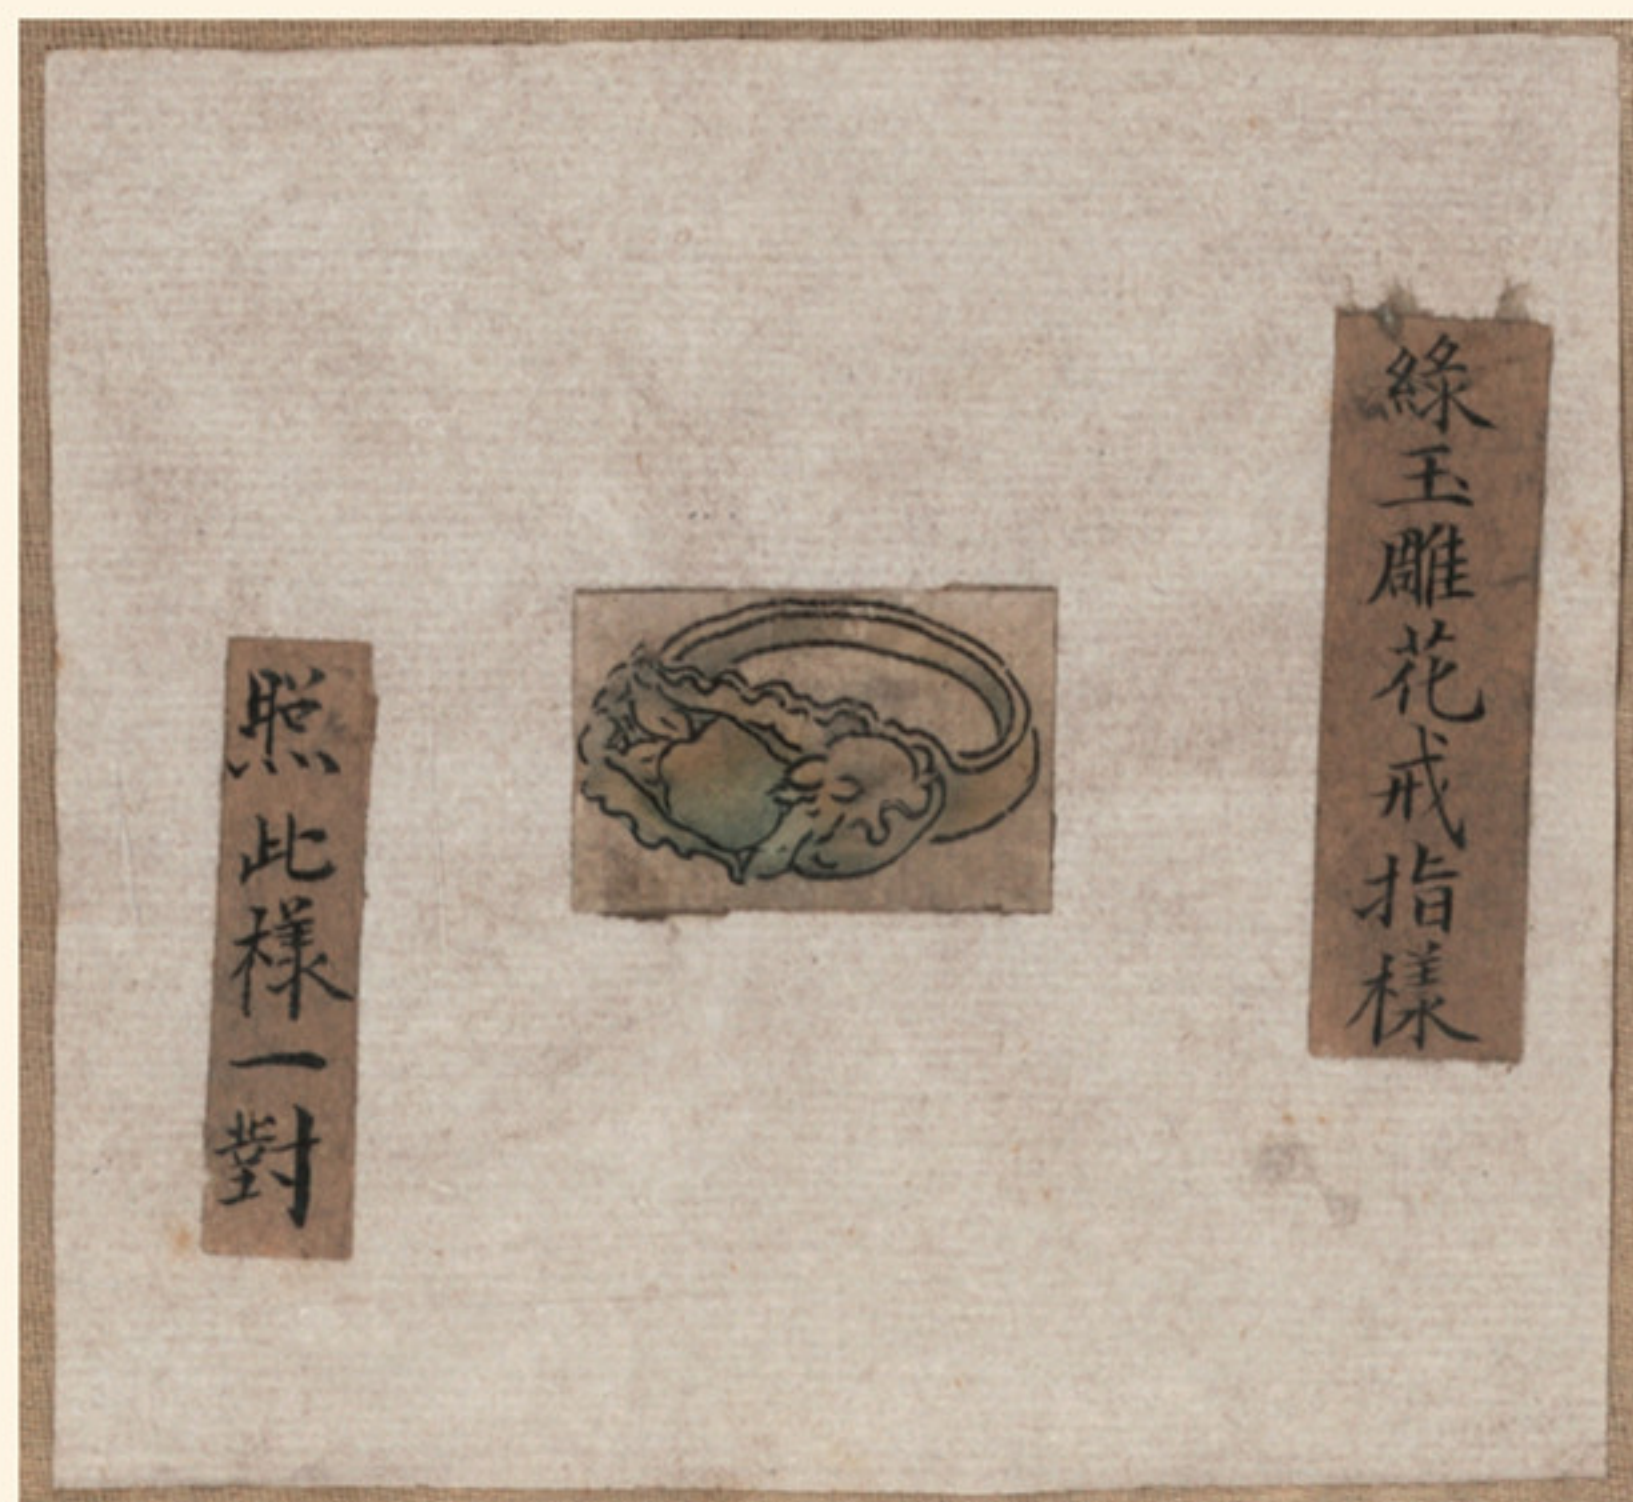 綠玉雕花戒指樣
照此樣一對